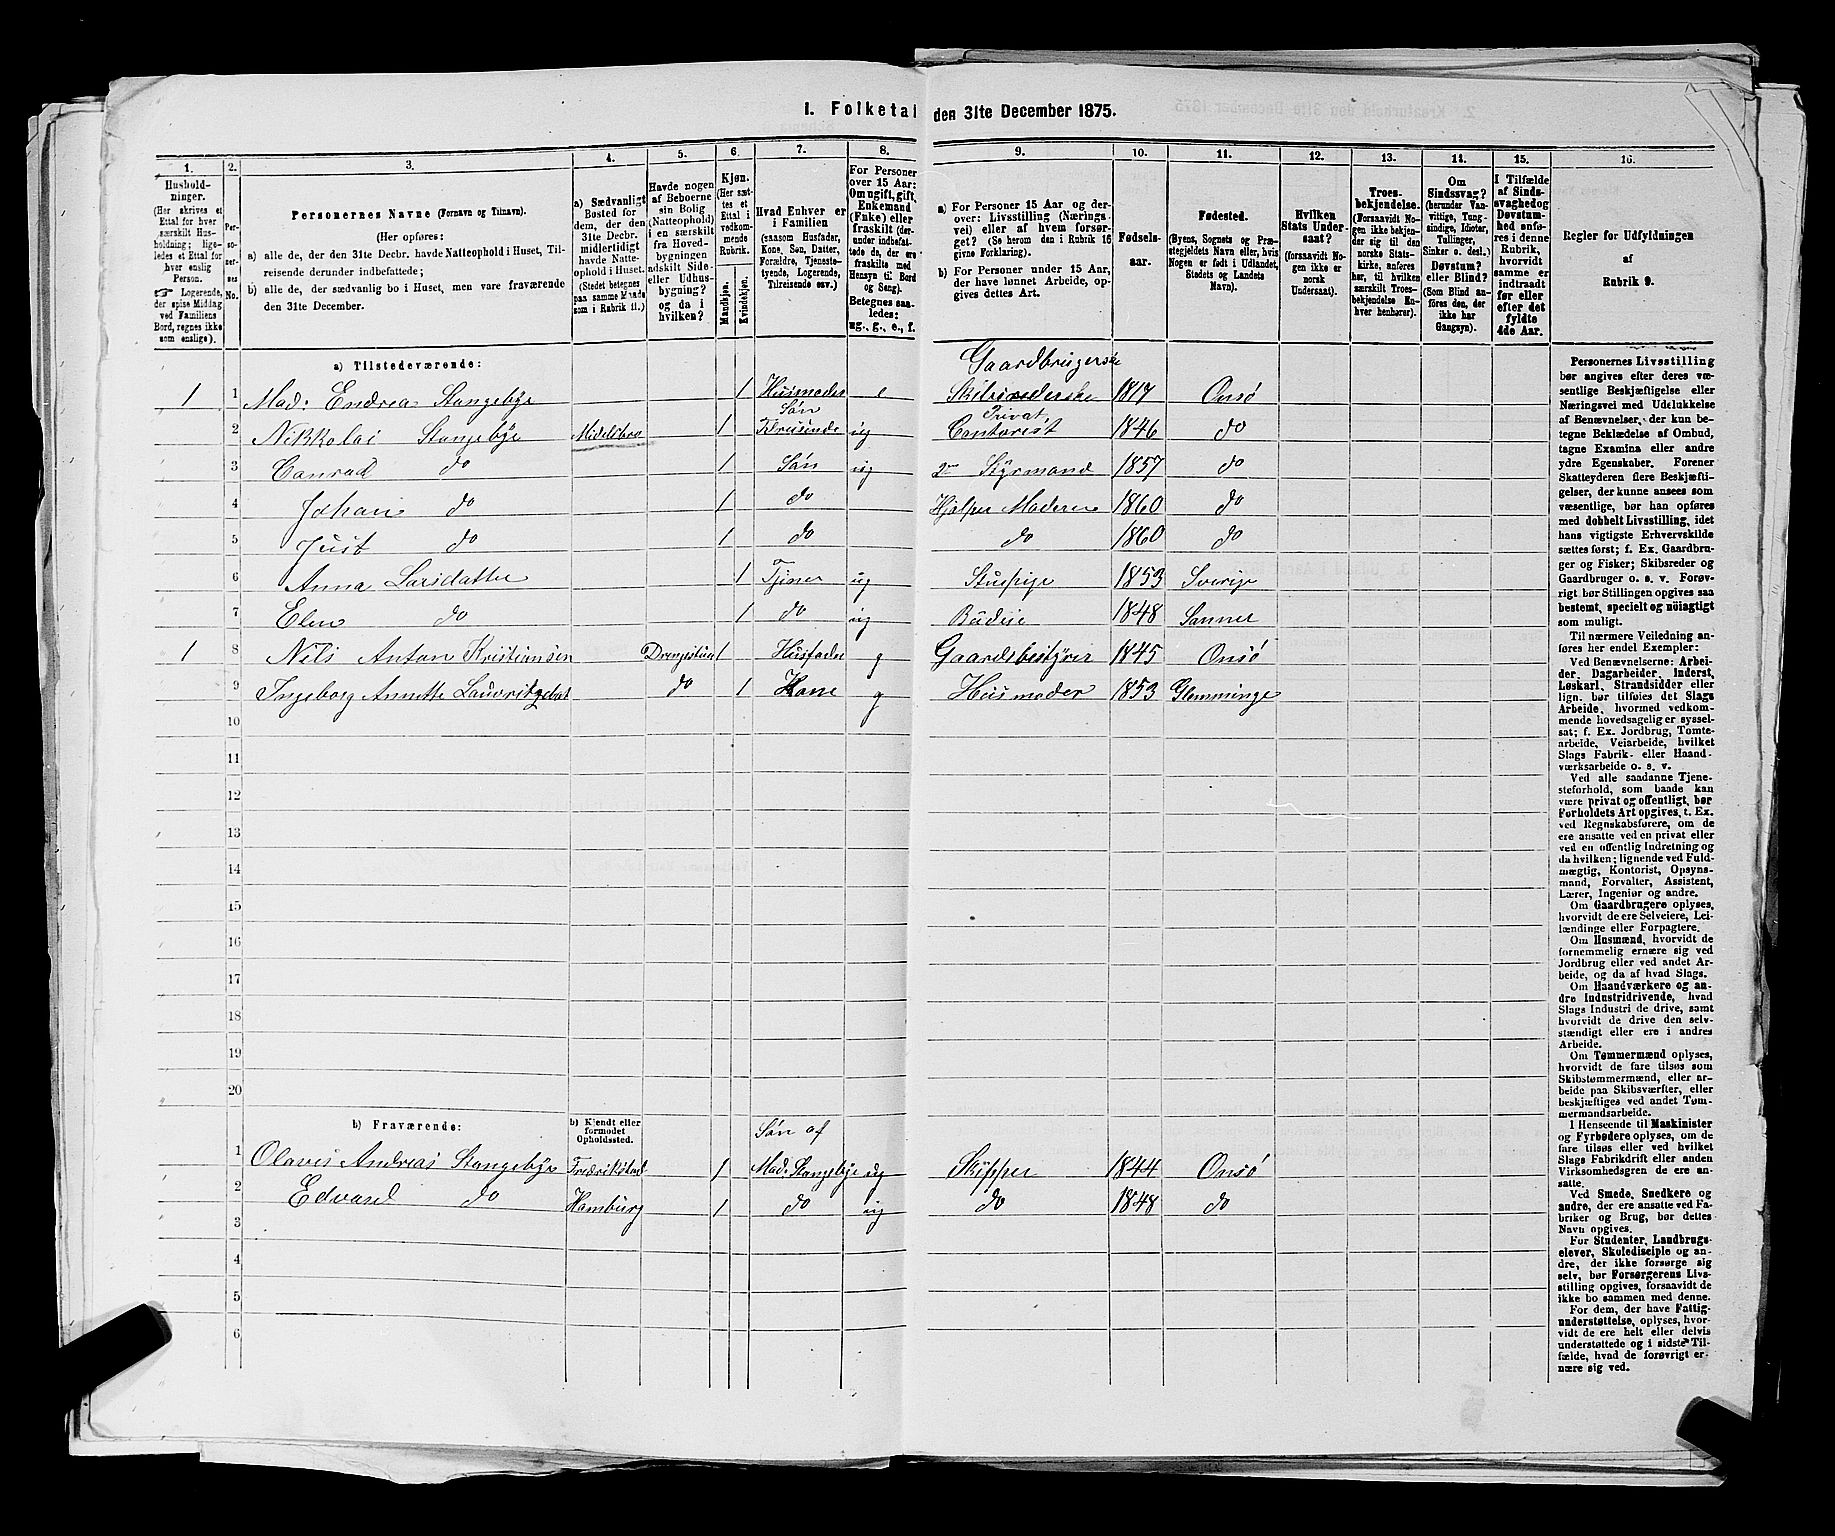 I. Folketal den 31te December 1875.
1. 2. 3. 4. 5. 6. 7. 8. 9. 10. 11. 12. 13. 14. 15. 16.
Husholdninger. (Her skrives et Ettal for hver særskilt Husholdning; ligeledes et Ettal for hver enslig Person. Logerende, der spise Middag ved Familiens Bord, regnes ikke som enslige).
Personernes No.
Personernes Navne (Fornavn og Tilnavn).
(Her opføres:
a) alle de, der den 31te Decbr. havde Natteophold i Huset, Tilreisende derunder indbefattede;
b) alle de, der sædvanlig bo i Huset, men vare fraværende den 31te December.
a) Sædvanligt Bosted for dem, der den 31te Decbr. midlertidigt havde Natteophold i Huset. (Stedet betegnes paa samme Maade som i Rubrik 11.)
Havde nogen af Beboerne sin Bolig (Natteophold) i en særskilt fra Hovedbygningen adskilt Side- eller Udhusbygning? og da i hvilken?
Kjøn. (Her sættes et Ettal i vedkommende Rubrik.
Mandkjøn. Kvindekjøn.
Hvad Enhver er i Familien (saasom Husfader, Kone, Søn, Datter, Forældre, Tjenestetyende, Logerende, Tilreisende osv.)
For Personer over 15 Aar: Om ugift, gift, Enkemand (Enke) eller fraskilt (derunder indbefattede de, der ere fraskilte med Hensyn til Bord og Seng). Betegnes saaledes: ug., g., e., f.
a) For Personer 15 Aar og derover: Livsstilling (Næringsvei) eller af hvem forsørget? (Se herom den i Rubrik 16 givne Forklaring).
b) For Personer under 15 Aar, der have lønnet Arbeide, opgives dettes Art.
Fødselsaar.
Fødested. (Byens, Sognets og Præstegjeldets Navn eller, hvis Nogen er født i Udlandet, Stedets og Landets Navn).
Hvilken Stats Undersaat? (forsaavidt Nogen ikke er norsk Undersaat).
Troesbekjendelse. (Forsaavidt Nogen ikke bekjender sig til den norske Statskirke, anføres her, til hvilken særskilt Troesbekjendelse Enhver henhører).
Om Sindssvag? (herunder Vanvittige, Tungsindige, Idioter, Tullinger, Sinker o. desl.) Døvstum? eller Blind? (Som Blind anføres den, der ikke har Gangsyn).
I Tilfælde af Sindssvaghed og Døvstumhed anføres i denne Rubrik, hvorvidt samme er indtraadt før eller efter det fyldte 4de Aar.
Regler for Udfyldningen af Rubrik 9.
a) Tilstedeværende:
Gaardbrugerske
1 1 Mad: Endrea Stangebye 1 Husmoder e Skibsrederske 1817 Onsö
Søn Privat
2 Nikkolai Stangebye 1 ug Contorist 1846 do
3 Conrad do 1 Søn ug Styrmand 1857 do
4 Johan do 1 do Hjælper Moderen 1860 do
5 Just do 1 do do 1860 do
6 Anna Larsdatter 1 Tjener ug Stuepige 1853 Sverige
7 Elen do 1 do ug Budeie 1848 Sannes
1 8 Nils Anton Kristiansen Drengestuen 1 Husfader g Gaardsbestyrer 1845 Onsö
9 Ingeborg Annette do 1 Kone g Husmoder 1853 Glemminge
10
11
12
13
14
15
16
17
18
19
20
b) Fraværende: b) Kjendt eller formodet Opholdssted. Søn af
1 Olaves Andreas Stangebye Fredrikstad 1 Mad: Stangebye ug Skipper 1844 Onsö
2 Edvard do Hamburg 1 do ug do 1848 do
3
4
5
6
Personernes Livsstilling
bør angives efter deres væ-
sentlige Beskjæftigelse eller
Næringsvei med Udelukkelse
af Benævnelser, der kun be-
tegne Beklædelse af Ombud,
tagne Examina eller andre
ydre Egenskaber. Forener
Skatteyderen flere Beskjæfti-
gelser, der kunne ansees som
væsentlige, bør han opføres
med dobbelt Livsstilling, idet
hans vigtigste Erhvervskilde
sættes først; f. Ex. Gaardbru-
ger og Fisker; Skibsreder og
Gaardbruger o. s. v. Forøv-
rigt bør Stillingen opgives saa
bestemt, specielt og nøiagtigt
som muligt.
Til nærmere Veiledning an-
føres her endel Exempler:
Ved Benævnelserne: Arbei-
der, Dagarbeider, Inderst,
Løskarl, Strandsidder eller
lign. bør tilføies det Slags
Arbeide, hvormed vedkom-
mende hovedsagelig er syssel-
sat; f. Ex. Jordbrug, Tomte-
arbeide, Veiarbeide, hvilket
Slags Fabrik- eller Haand-
værksarbeide o. s. v.
Ved alle saadanne Tjene-
steforhold, som baade kan
være privat og offentligt, bør
Forholdets Art opgives, t. Ex.
ved Regnskabsførere, om de
ere ansatte ved en privat eller
ved en offentlig Indretning og
da hvilken; lignende ved Fuld-
mægtig, Kontorist, Opsyns-
mand, Forvalter, Assistent,
Lærer, Ingeniør og andre.
Om Gaardbrugere oplyses,
hvorvidt de ere Selveiere, Lei-
lændinge eller Forpagtere.
Om Husmænd, hvorvidt de
fornemmelig ernære sig ved
Jordbrug eller ved andet Ar-
beide, og da af hvad Slags.
Om Haandværkere og an-
dre Industridrivende, hvad
Slags Industri de drive, samt
hvorvidt de drive den selv-
stændigt eller ere i andres
Arbeide.
Om Tømmermænd oplyses,
hvorvidt de fare tilsøs som
Skibstømmermænd, eller ar-
beide paa Skibsværfter, eller
beskjæftiges ved andet Tøm-
mermandsarbeide.
I Henseende til Maskinister
og Fyrbødere oplyses, om de
fare tilsøs eller ved hvilket
Slags Fabrikdrift eller anden
Virksomhedsgren de ere an-
satte.
Ved Smede, Snedkere og
andre, der ere ansatte ved Fa-
briker og Brug, bør dettes
Navn opgives.
For Studenter, Landbrugs-
elever, Skoledisciple og an-
dre, der ikke forsørge sig
selv, bør Forsørgerens Livs-
stilling opgives, forsaavidt de
ikke bo sammen med denne.
For dem, der have Fattig-
understøttelse, oplyses, hvor-
vidt de ere helt eller delvis
understøttede og i sidste Til-
fælde, hvad de forøvrigt er-
nære sig ved.